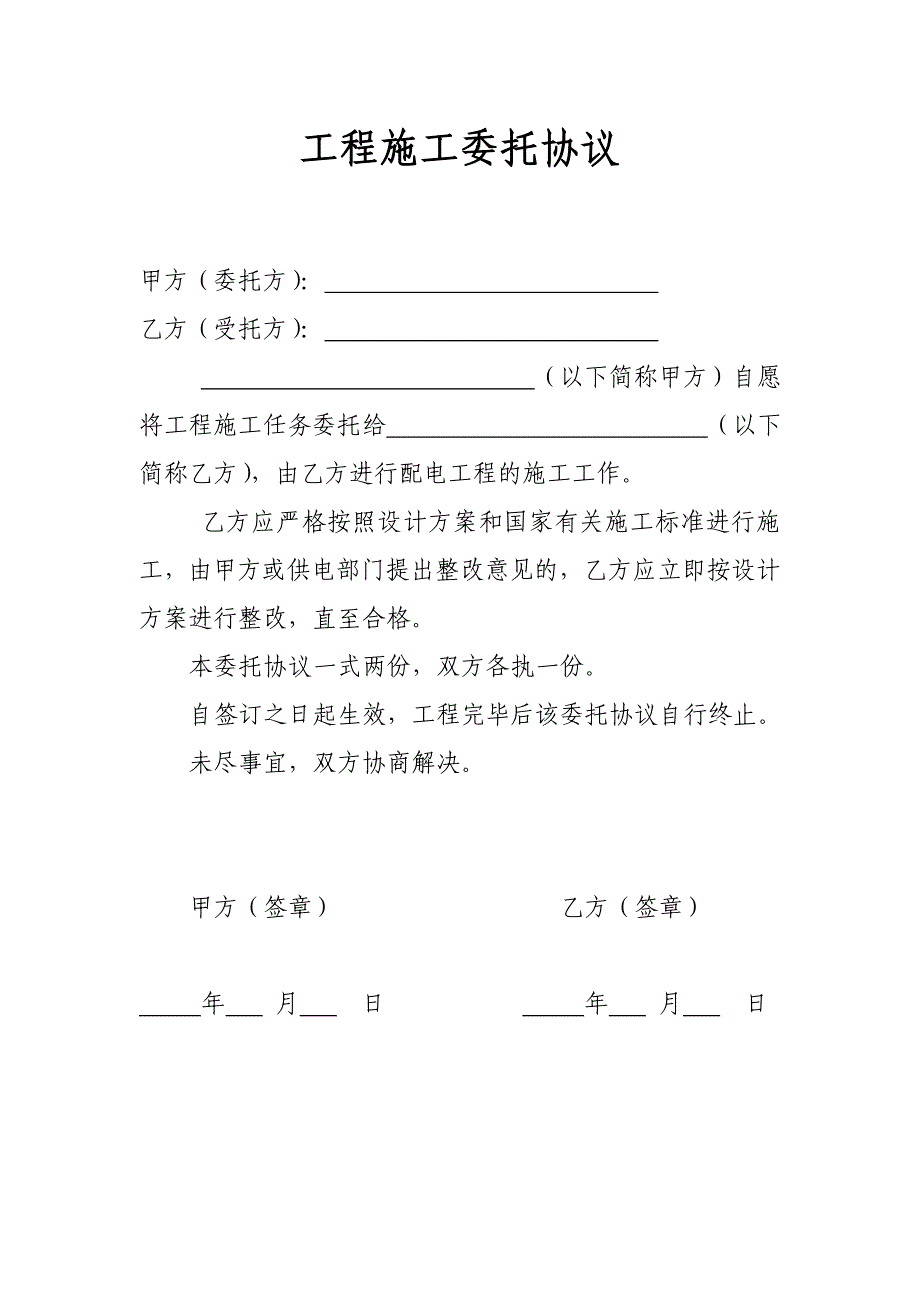 工程施工委托协议
甲方（委托方）：___________________________
乙方（受托方）：___________________________
___________________________（以下简称甲方）自愿
将工程施工任务委托给__________________________（以下
简称乙方），由乙方进行配电工程的施工工作。
乙方应严格按照设计方案和国家有关施工标准进行施
工，由甲方或供电部门提出整改意见的，乙方应立即按设计
方案进行整改，直至合格。
本委托协议一式两份，双方各执一份。
自签订之日起生效，工程完毕后该委托协议自行终止。
未尽事宜，双方协商解决。
甲方（签章） 乙方（签章）
_____年___ 月___ 日 _____年___ 月___ 日